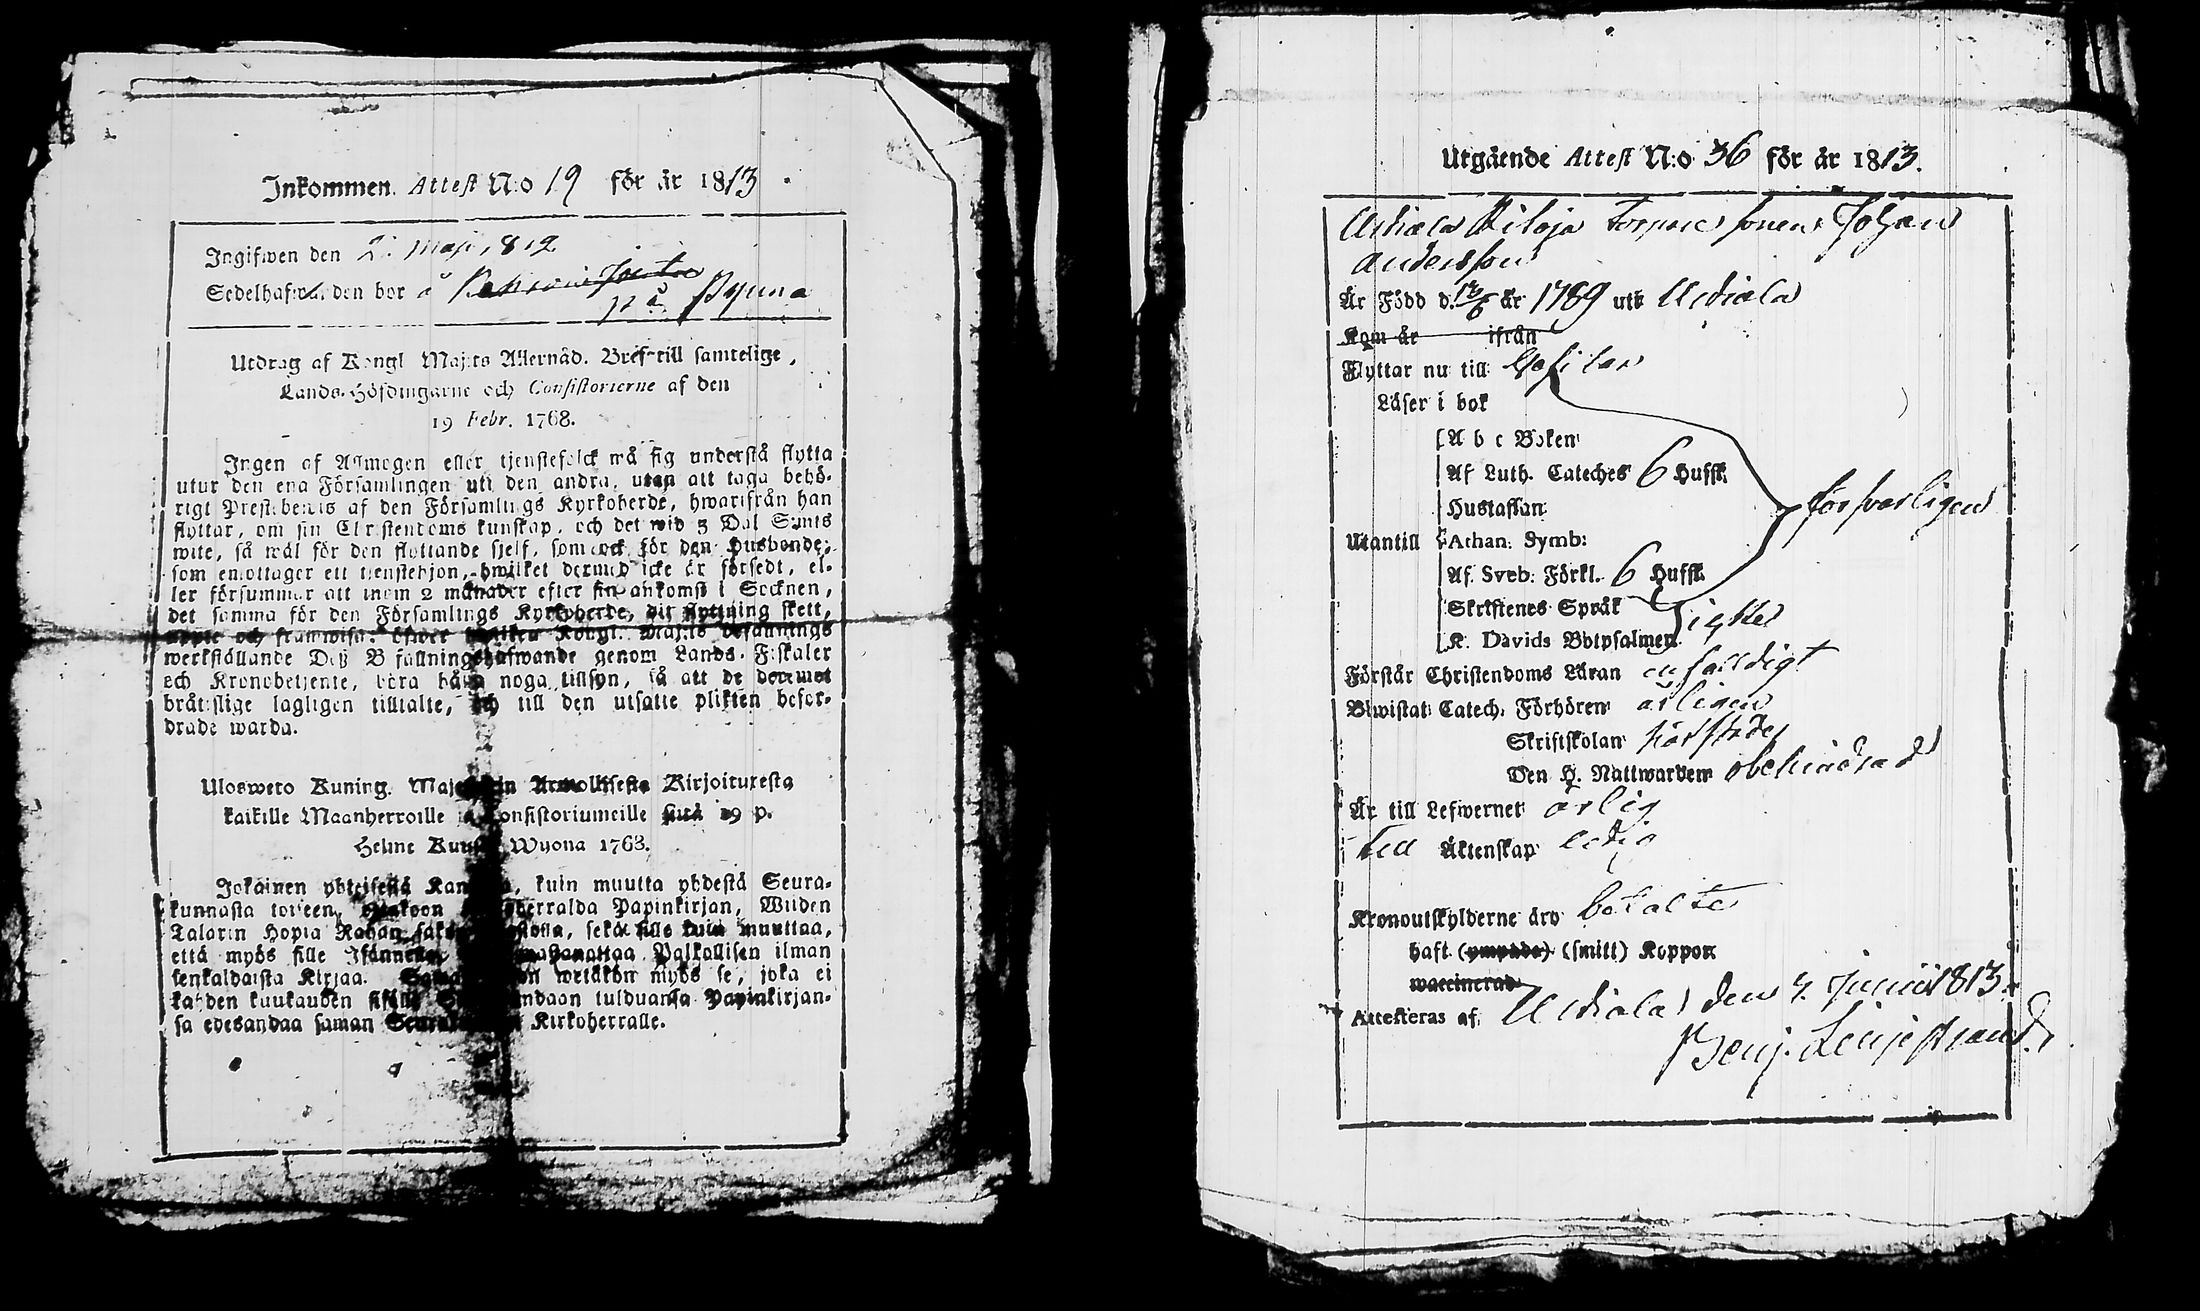 Inkommen Attest N:o 19 för år 1813
Ingifwen den 2. Maji 1812
Sedelhafwanden bor å
på Pyuna
Utdrag af Kongl Maj:ts Allernåd. Bref till samtelige
Lands-Höfdingarne och Consistorierne af den
19 Febr. 1768.
Ingen af Allmogen eller tjenstefolck må sig understå flytta
utur den ena Församlingen uti den andra, utan att taga behö-
rigt Prestebewis af den Församlings Kyrkoherde, hwarifrån han
flyttar, om sin Christendoms kunskap, och det wid 3 Dal Smts
wite, så wäl för den flyttande sjelf, som ock för den Husbonde,
som emottager ett tjenstehjon, hwilket dermed icke är försedt, el-
ler försummar att inom 2 månader efter sin ankomst i Socknen,
det samma för den Församlings Kyrkoherde, dit flyttning skett,
uppte och framwisa: öfwer hwilken Kongl. Maj:ts Befallnings
werkställande Deß Befallningshafwande genom Lands-Fiskaler
och Kronobetjente, böra hafwa noga tillsyn, så att de deremot
bråtslige lagligen tilltalte, och till den utsatte plikten befor-
drade warda.
Uloswero Kuning. Majestetin Armollisesta Kirjoituxesta
kaikille Maanherroille ja Consistoriumeille siitä 19 p.
Helme Kuusa Wuona 1768.
Jokainen yhteisestä Kansasta, kuin muutta yhdestä Seura-
kunnasta toiseen, ottakoon Kirkoherralda Papinkirjan, Wiiden
Talarin Hopia Rahan sakon uhalla, sekä sille kuin muuttaa,
että myös sille Isännelle wastanottaa Palkollisen ilman
senkaldaista Kirjaa. Saman sakon wetäkön myös se, joka ei
kahden kuukauden sisällä Seurakundaan tulduansa Papinkirjan-
sa edesandaa saman Seurakunnan Kirkoherralle.
Utgående Attest N:o 36 för år 1813.
Urdiala Kiloja Torpare sonen Johan
Andersson
Är Född d. 13/6 år 1789 uti Urdiala
Kom år ifrån
Flyttar nu till
Läser i bok
A b c Boken
Af Luth. Cateches 6 Hufst.
Hustaflan
försvarligen
Utantill Athan. Symb:
Af Sveb. Förkl. 6 Hufst.
Skriftenes Språk
K. Davids Botpsalmer
Förstår Christendoms Läran enfaldigt
Biwistat Catech. Förhören årligen
Skriftskolan
Den H. Nattwarden obehindrad
Är till Lefwernet ärlig
Till Äktenskap ledig
Kronoutskylderne äro betalte
haft (ympade) (smitt) Koppor
waccinerad
Attesteras af Urdiala den 4. Junii 1813.
Benj. Liljestrand